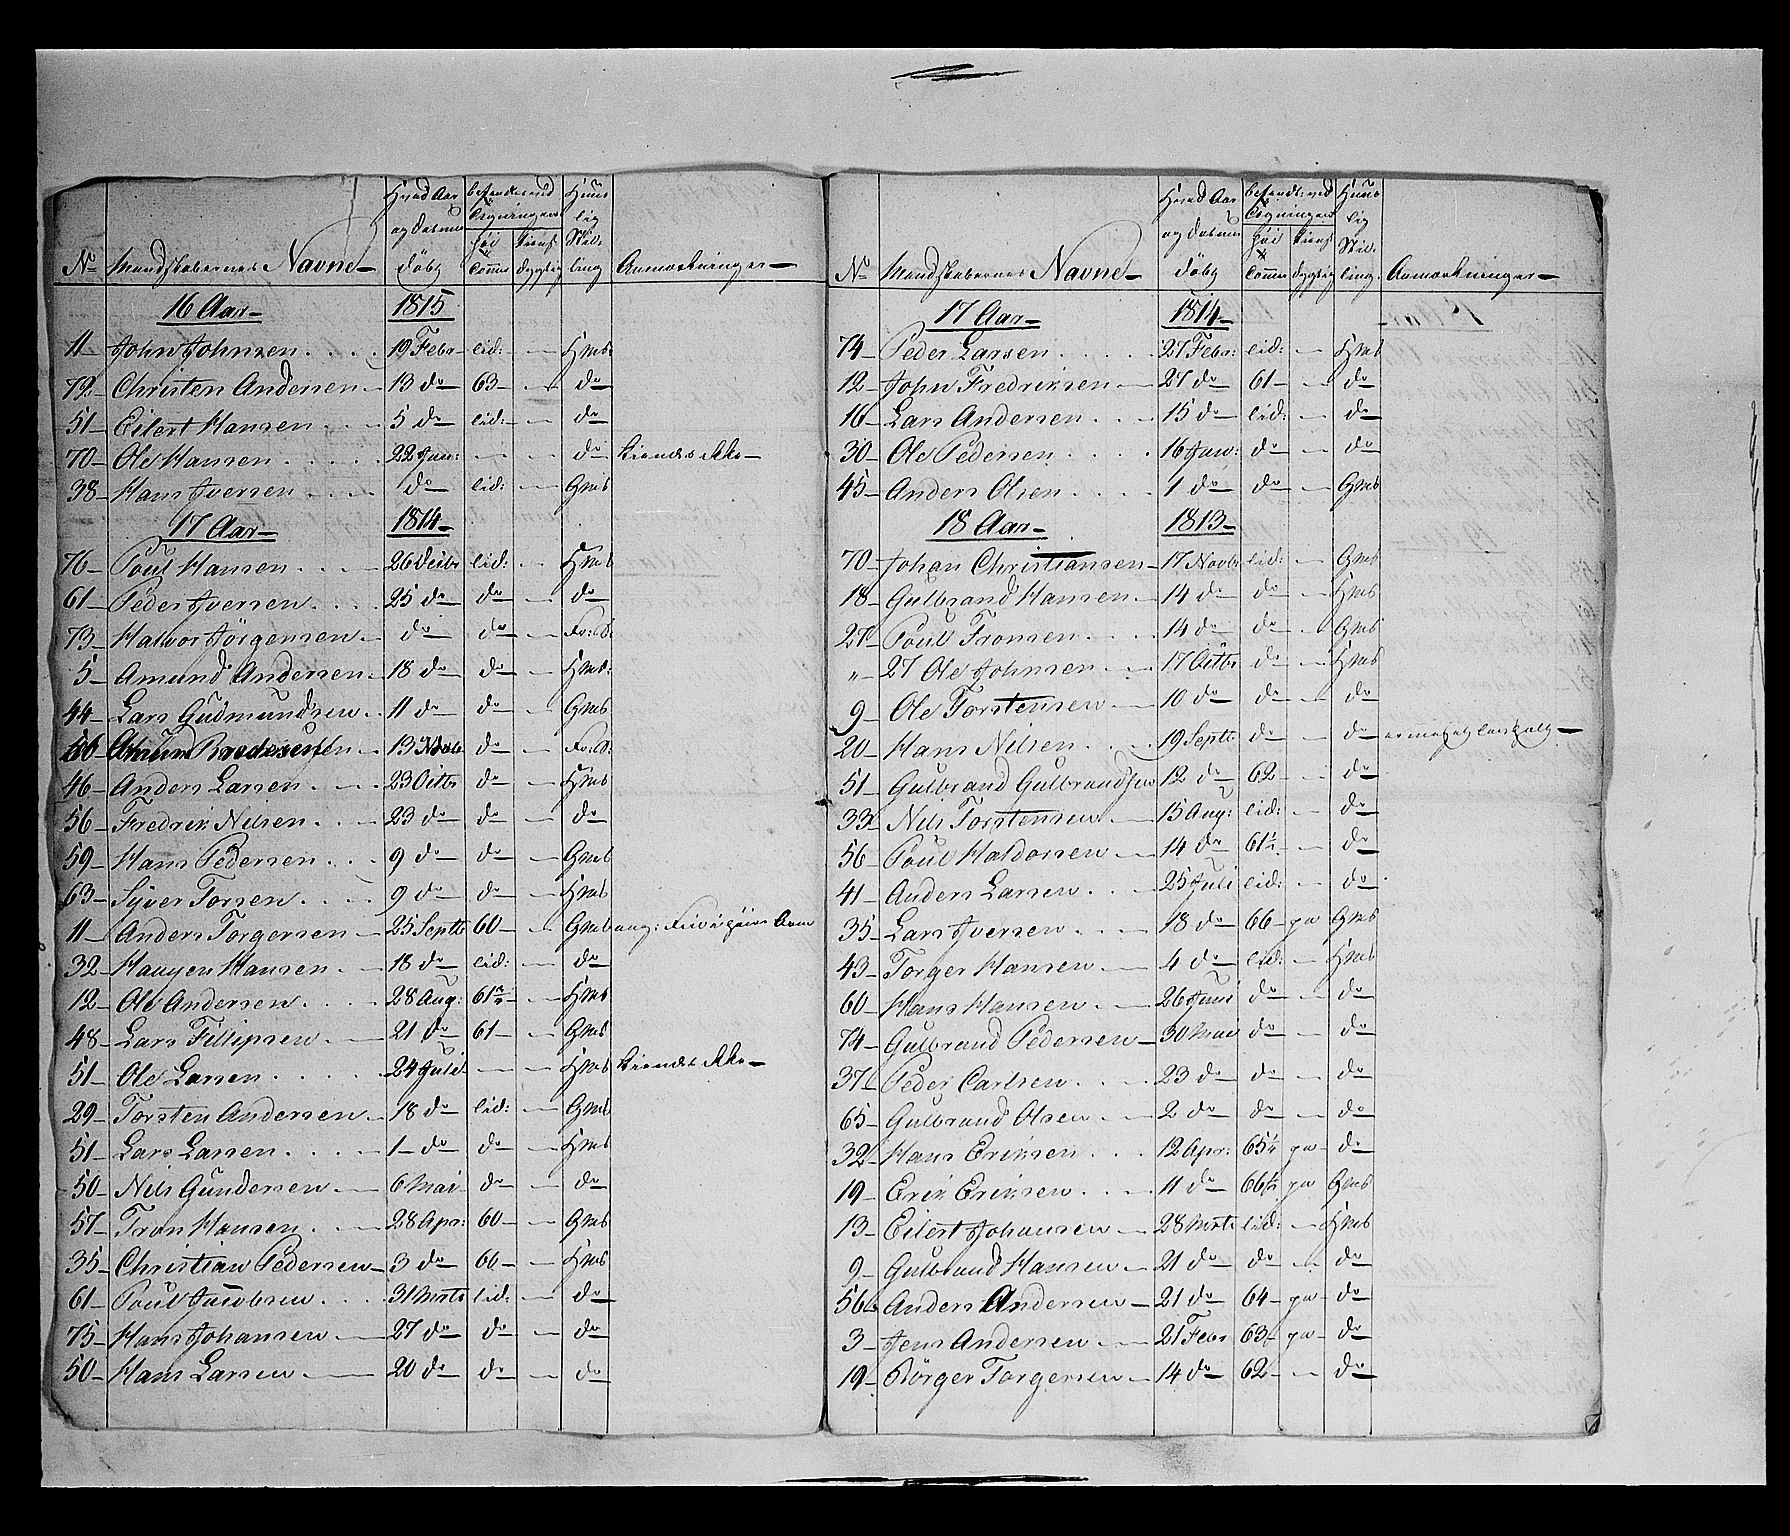 No Mandskabernes Navne Hvad Aar og Datum döbt befandtes ved Segningen höi Tomm tienst dygtig Huus lig Stil- ling Anmærkninger
16 Aar 1815
11 John Johnsen 19 Febr lid: Hmb:
72 Christen Andersen 13 do 63 do
51 Eilert Hansen 5 do lid: do
70 Ole Hansen 22 Jan: do kiendes ikke
38 Hans Iversen 1 do lid: Gmb
17 Aar 1814
76 Poul Hansen 26 Decbr lid: Hmb
61 Peder Iversen 25 do do do
73 Halvor Jörgensen do do
5 Amund Andersen 18 do do Hmb:
44 Lars Gudmundsen 11 do do Gmb
13 do
46 Anders Larsen 23 Octbr do Hmb
56 Fredrik Nilsen 23 do do do
59 Hans Pedersen 9 do do Gmb
63 Syver Torsen 9 do do Hmb
11 Anders Torgersen 25 Septb 60 Gmb
32 Haagen Hansen 18 do lid: do
12 Ole Andersen 28 Aug: 61½ Hmb
48 Lars Fillipsen 21 do 61 Gmb
51 Ole Larsen 24 Juli Hmb kiendes ikke
29 Torsten Andersen 18 do lid: Gmb
51 Lars Larsen 1 do do Hmb
50 Nils Gundersen 6 Mai do do
57 Tron Hansen 28 Apr: 60 Gmb
35 Christian Pedersen 3 do 60 Hmb
61 Poul Jacobsen 31 Marts lid: do
75 Hans Johansen 27 do do do
50 Hans Larsen 20 do do do
No Mandskabernes Navne Hvad Aar og Datum döbt befandtes ved Segningen höi Tomm tienst dygtig Huus lig Stil- ling Anmærkninger
17 Aar 1814
74 Peder Larsen 27 Febr: lid: Hmb
12 John Fredriksen 27 do 61 do
16 Lars Andersen 15 do lid: do
30 Ole Pedersen 16 Jan: do do
45 Anders Olsen 1 do do Gmb
18 Aar 1813
70 Johan Christiansen 17 Novbr lid: Gmb
18 Gulbrand Hansen 14 do do Hmb
27 Poul Tronsen 14 do do Gmb
" 27 Ole Johnsen 17 Octbr do Hmb
9 Ole Torstensen 10 do do do
20 Hans Nilsen 19 Septb do do
51 Gulbrand Gulbrandsen 12 do 62 do
33 Nils Torstensen 15 Aug: lid: do
56 Poul Haldorsen 14 do 61½ do
41 Anders Larsen 25 Juli lid: do
35 Lars Iversen 18 do 66 pa Gmb
43 Torger Hansen 4 do lid: Hmb
60 Hans Hansen 26 Juni do do
74 Gulbrand Pedersen 30 Mai do do
37 Peder Carlsen 23 do do do
65 Gulbrand Olsen 2 do do do
32 Hans Eriksen 12 Apr: 65½ pa do
19 Erik Eriksen 11 do 66½ pa Gmb
13 Eilert Johansen 28 Marts lid: Hmb
9 Gulbrand Hansen 21 do do do
56 Anders Andersen 21 do 64 pa do
3 Jens Andersen 21 Febr 63 pa do
19 Börger Torgersen 14 do 62 do